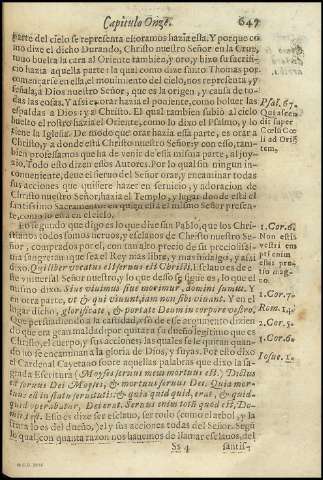 Capitulo Onze. 647
parte del cielo se representa estoramos hazia ella. Y porque co
mo dize el dicho Durando, Christo nuestro Señor en la Cruz,
tuuo buelta la cara al Oriente tambien, y oro, y hizo su sacrifi-
cio hazia aquella parte: la qual como dize santo Thomas por
comentarse en ella, el mouimiento del cielo, nos representa, y
señala, a Dios nuestro Señor, que es la origen, y causa de to-
das las cosas. Y assi es orar hazia el poniente, como boluer las
espaldas a Dios: y a Christo. El qual tambien subio al cielo
buelto el rostro hazia el Oriente, como lo dize el Psalmo, y lo
tiene la Iglesia. De modo que orar hazia esta parte, es orar a
Christo, y a donde està Christo nuestro Señor: y con esso, tam-
bien professamos que ha de venir de essa misma parte, al juy-
zio. Todo esto dizen essos Autores. Por lo qual sin ningun in-
conueniente, deue el sieruo del Señor orar, y encaminar todas
sus acciones que quisiere hazer en seruicio, y adoracion de
Christo nuestro Señor, hazia el Templo, y lugar donde està el
santissimo Sacramento en quien està el mismo Señor presen-
te, como lo està en el cielo.
Lo segundo que digo es lo que dize san Pablo, que los Chri-
stianos todos somos sieruos, y esclauos de Christo nuestro Se-
ñor, comprados por el, con tan alto precio de su preciosissi-
ma sangre
Qui liber vocatus est seruus est Christi. Esclauo es de es-
te vniuersal Señor nuestro, y lo que de
mismo dixo. Siue viuimus siue morimur, domini sumus. Y
en otra parte, vt & qui viuunt, iam non sibi viuant. Y en el
lugar dicho, glorificate, & portate Deum in corpore vestro.
Que persuadiendo a la castidad, y so
do que era gran maldad, por quitar a su dueño legitimo que es
Christo, el cuerpo, y sus acciones; las quales se le quitan quan-
do no se encaminan a la gloria de Dios, y suyas. Por esso dixo
el Cardenal Cayetano sobre aquellas palabras que dixo la sa-
grada Escritura (Moyses seruus meus mortuus est.) Dictus
est seruus Dei Moyses, & mortuus seruus Dei. Quia mor-
tuus est in statu seruitutis: & quia quid quid, erat, & quid-
quid operabatur, Dei erat. Seruus enim totus quod est, Do-
mini est. Esso dize es ser esclauo, ser todo (como el arbol, y la fru
ta lo es del dueño) el y sus acciones todas del Señor. Segũ
lo qual; con quanta razon nos hauemos de llamar esclauos, del
Ss 4 santis-
Psal. 67.
Qui ascen
dit super
Cœlũ Cœ
li ad Oriẽ
tem,
1. Cor. 6.
Non estis
vestri em
pti enim
estis pre-
tio mag-
no.
1. Cor. 7.
Rom. 14.
2. Cor. 5.
1. Cor. 6.
Iosue. 1.